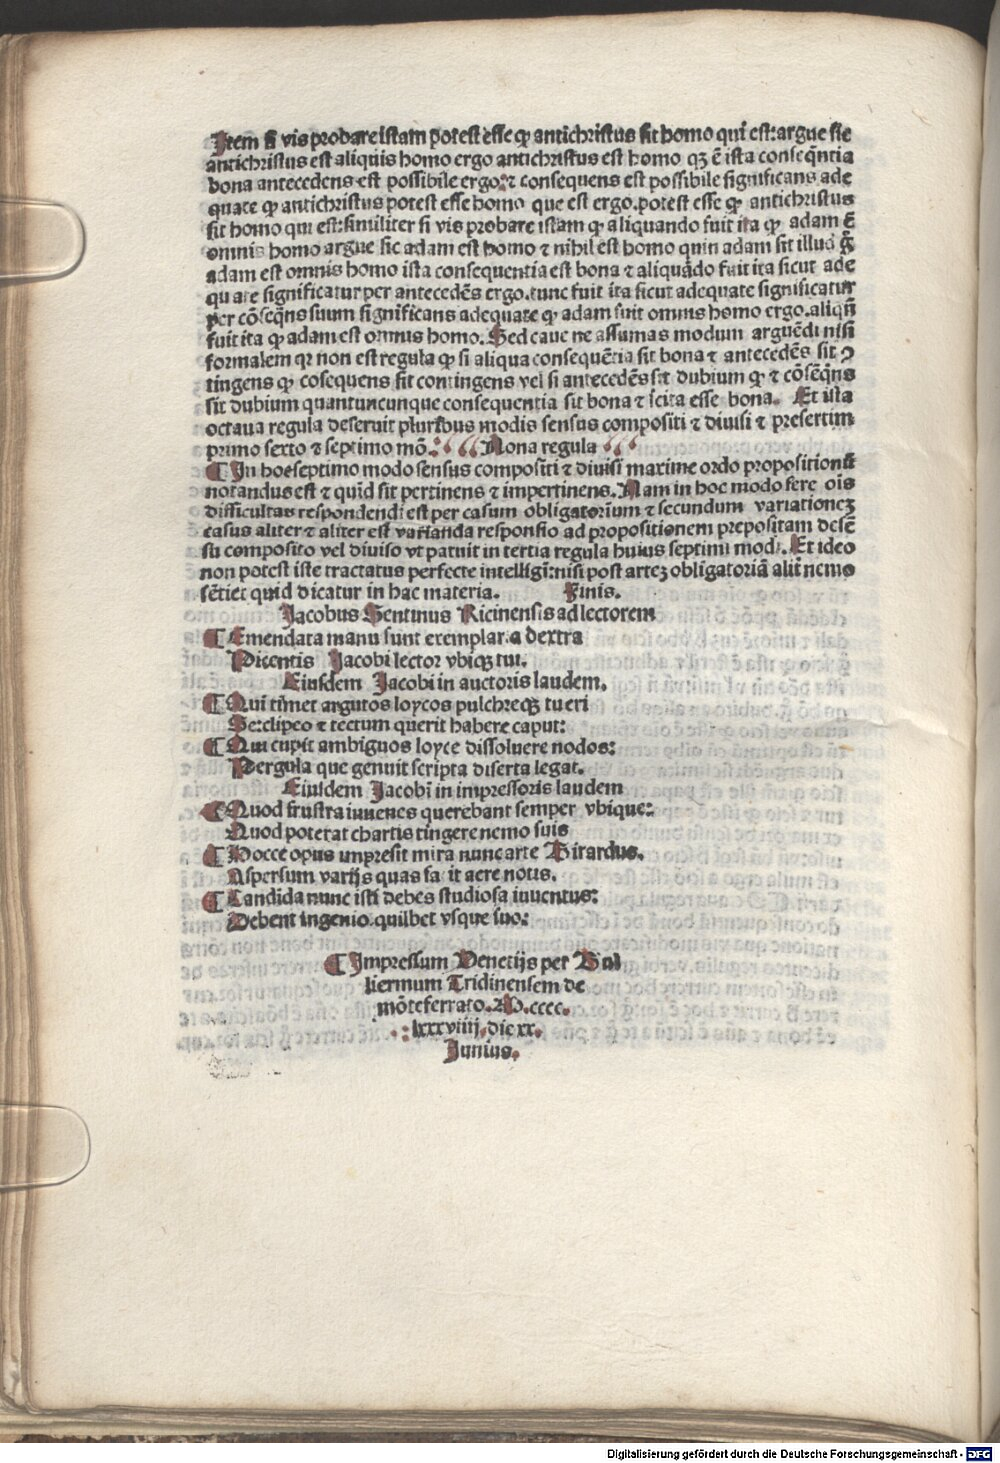 Item si vis probare istam potest esse ꝙ antichristus sit homo qui est: argue sic
antichristus est aliquis homo ergo antichristus est homo qꝫ ē ista conseq̄ntia
bona antecedens est possibile ergo: ⁊ consequens est possibile significans ade
quate ꝙ antichristus potest esse homo que est ergo. potest esse ꝙ antichristus
sit homo qui est: similiter si vis probare istam ꝙ aliquando fuit ita ꝙ adam ē
omnis homo argue sic adam est homo ⁊ nihil est homo quin adam sit illud g̃
adam est omnis homo ista consequentia est bona ⁊ aliquādo fuit ita sicut ade
quate significatur per antecedēs ergo. tunc fuit ita sicut adequate significatur
per cōseq̄ns suum significans adequate ꝙ adam fuit omnis homo ergo. aliqñ
fuit ita ꝙ adam est omnis homo. Sed caue ne assumas modum arguēdi nisi
formalem qr non est regula ꝙ si aliqua consequētia sit bona ⁊ antecedēs sit ꝯ
tingens ꝙ cosequens sit contingens vel si antecedēs sit dubium ꝙ ⁊ cōsēq̄ns
sit dubium quantuncunque consequentia sit bona ⁊ scita esse bona. Et ista
octaua regula deseruit pluribus modis sensus compositi ⁊ diuisi ⁊ presertim
primo sexto ⁊ septimo mō. Nona regula
¶ In hoc septimo modo sensus compositi ⁊ diuisi maxime ordo propositionū
notandus est ⁊ quid sit pertinens ⁊ impertinens. Nam in hoc modo fere oīs
difficultas respondendi est per casum obligatorium ⁊ secundum variationeꝫ
casus aliter ⁊ aliter est varianda responsio ad propositionem prepositam de sē
su composito vel diuiso vt patuit in tertia regula huius septimi modi. Et ideo
non potest iste tractatus perfecte intelligi: nisi post arteꝫ obligatoriā alit̄ nemo
sētiet quid dicatur in hac materia. Finis.
Jacobus Sentinus Ricinensis ad lectorem
¶ Emendata manu sunt exemplaria dextra
Dicentis Jacobi lector vbiqꝫ tui.
Eiusdem Jacobi in auctoris laudem.
¶ Qui timet argutos loycos pulchreqꝫ tueri
Se: clipeo ⁊ tectum querit habere caput:
¶ Qui cupit ambiguos loyce dissoluere nodos:
Pergula que genuit scripta diserta legat.
Eiusdem Jacobi in impressoris laudem
¶ Quod frustra iuuenes querebant semper vbique:
Quod poterat chartis tingere nemo suis
¶ Hocce opus impresit mira nunc arte Girardus.
Aspersum varijs quas facit aere notis.
¶ Candida nunc isti debes studiosa iuuentus:
Debent ingenio quilibet vsque suo:
¶ Impressum Venetijs per Gul
liermum Tridinensem de
mōteferrato. M.cccc.
lxxxviiij. die xx.
Junius.
Digitalisierung gefördert durch die Deutsche Forschungsgemeinschaft - DFG